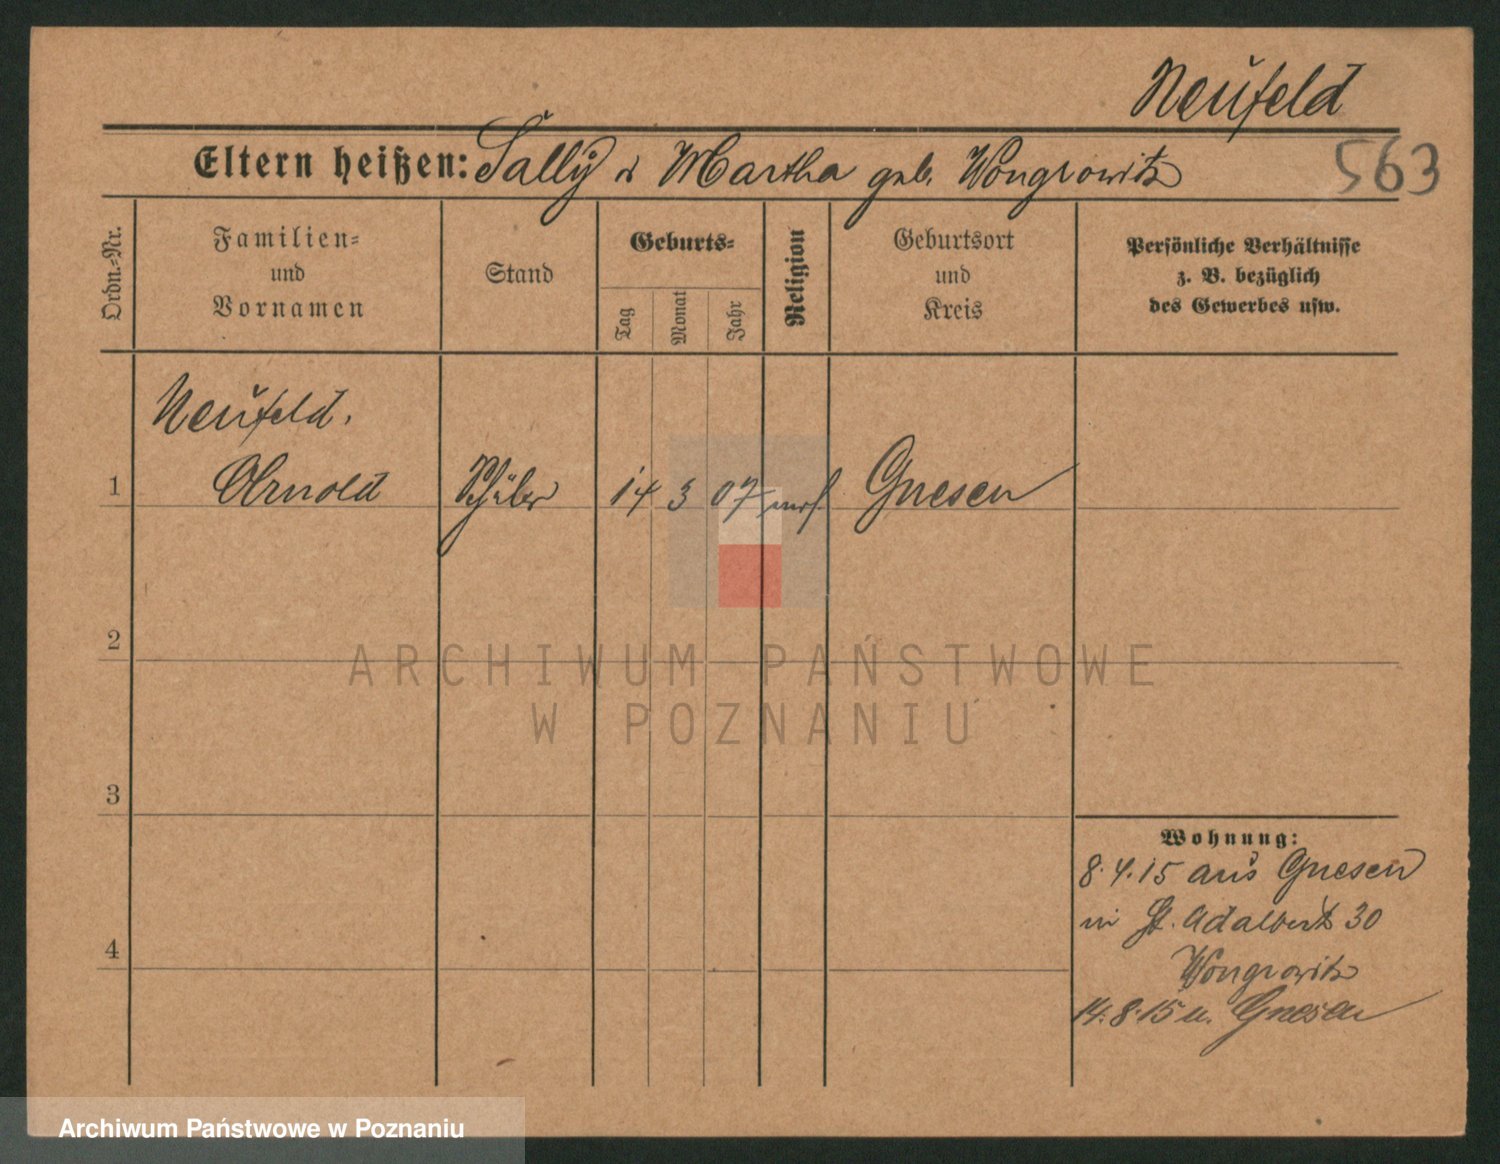 Neufeld
Eltern heißen: Sally u Martha geb. Wongrowitz
563
Ordn.-Nr.
Familien-
und
Vornamen
Stand
Geburts-
Tag
Monat
Jahr
Religion
Geburtsort
und
Kreis
Persönliche Verhältnisse
z. B. bezüglich
des Gewerbes usw.
Neufeld.
1 Arnold Schüler 14 3 07 mos. Gnesen
2
ARCHIWUM PAŃSTWOWE
W POZNANIU
3
4
Wohnung:
8.4.15 aus Gnesen
in St. Adalbert 30
Wongrowitz
14.8.15 n. Gnesen
Archiwum Państwowe w Poznaniu